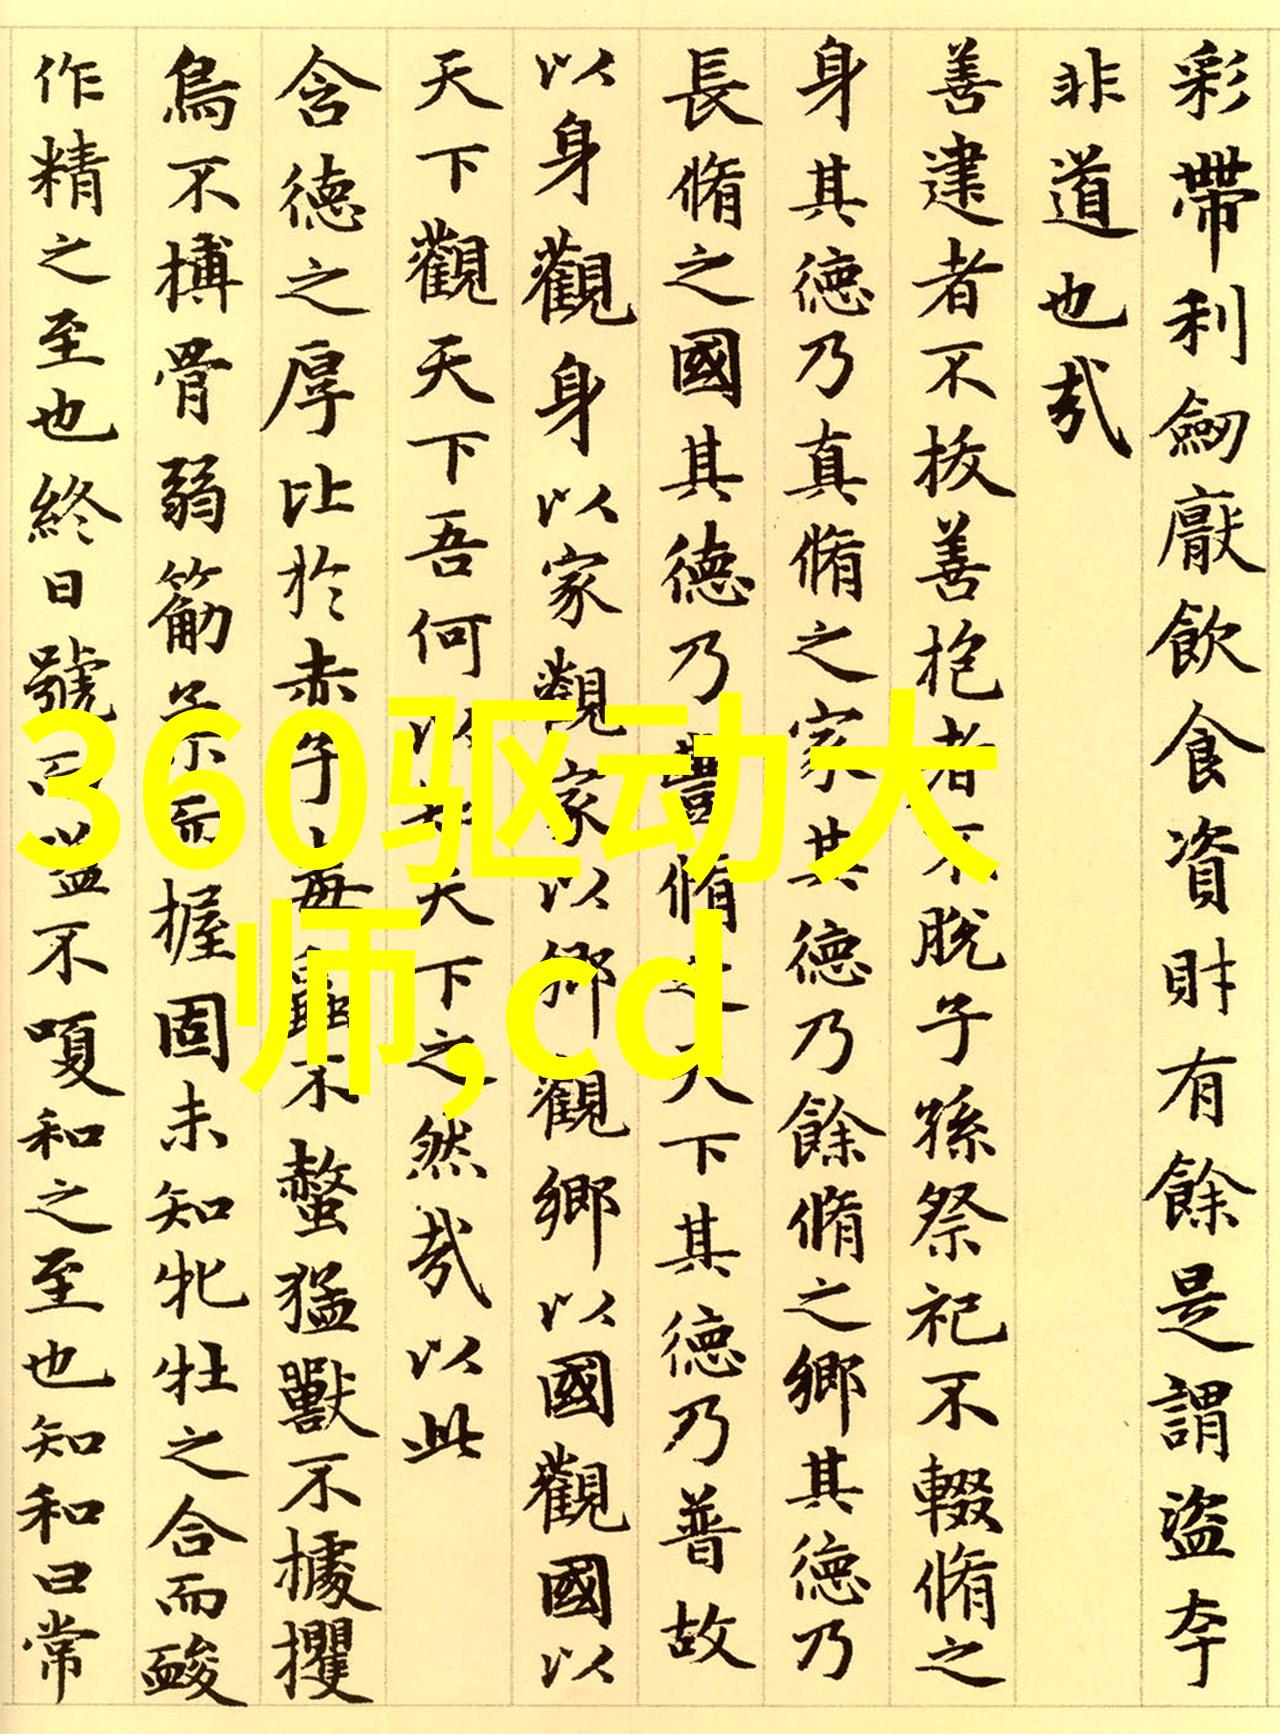 彩帶利劒厭飲食資財有餘是謂盜夸
非道也㢤
善建者不拔善抱者不脫子孫祭祀不輟脩之
身其德乃真脩之家其德乃餘脩之鄉其德乃
長脩之國其德乃豐脩之天下其德乃普故
以身觀身以家觀家以鄉觀鄉以國觀國以
天下觀天下吾何以知天下之然㢤以此
含德之厚比於赤子毒蟲不螫猛獸不據攫
鳥不搏骨弱筋柔而握固未知牝牡之合而酸
作精之至也終日號而嗌不嗄和之至也知和曰常
360驱动大
师,cd